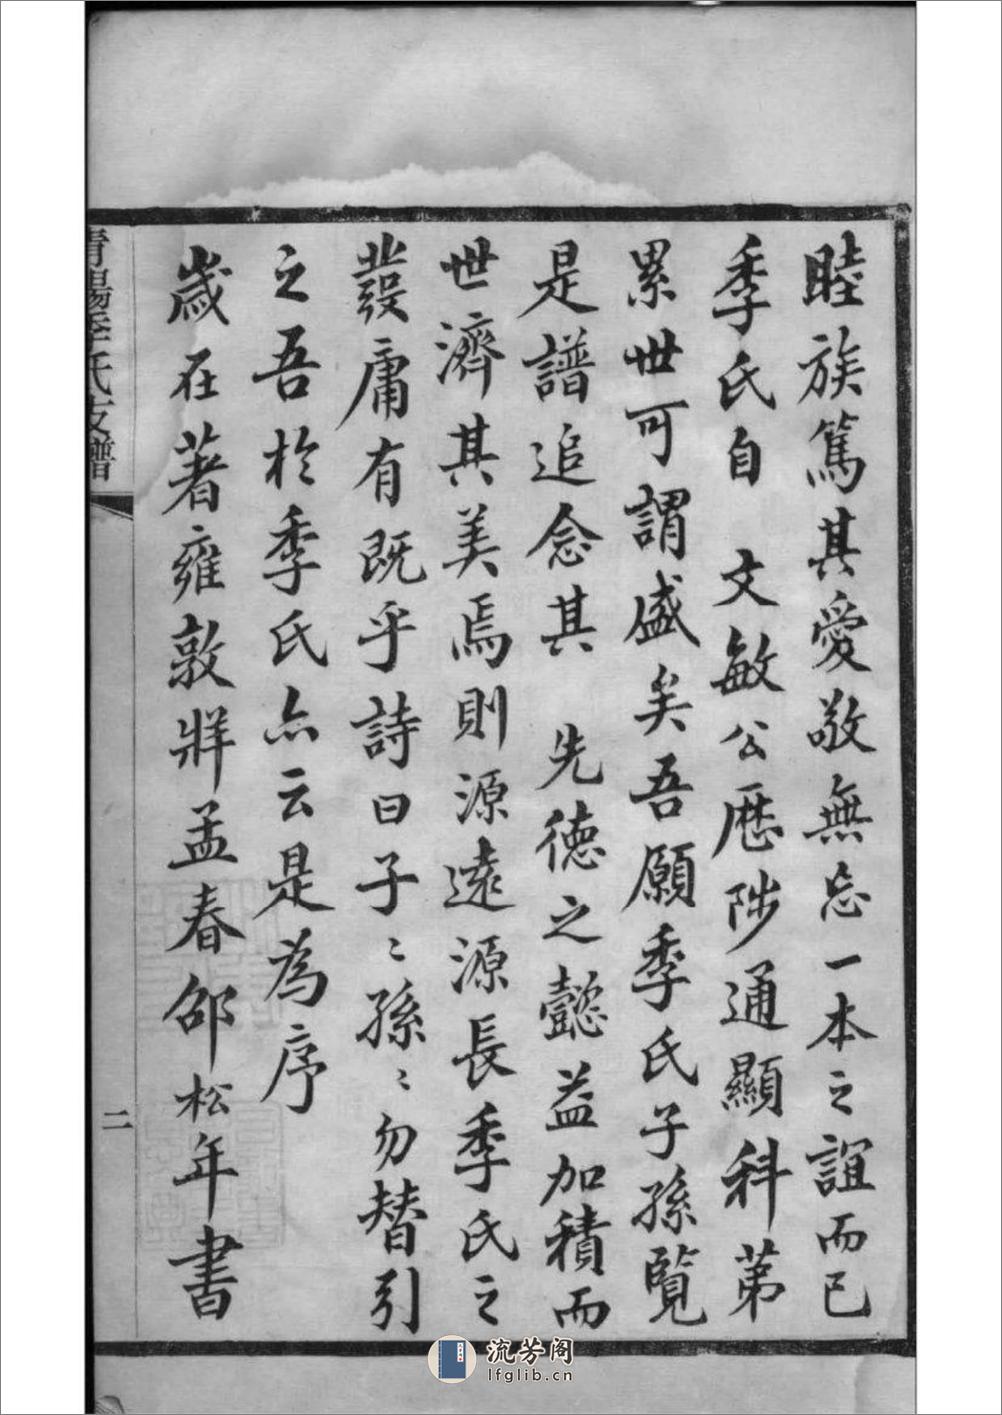 睦族篤其愛敬無忘一本之誼而已
季氏自　文敏公歷陟通顯科第
累世可謂盛矣吾願季氏子孫覽
是譜追念其　先德之懿益加積而
世濟其美焉則源遠源長季氏之
發庸有既乎詩曰子〻孫〻勿替引
之吾於季氏亦云是為序
歲在著雍敦牂孟春邵松年書
青暘季氏支譜
二
流芳阁
lfglib.cn